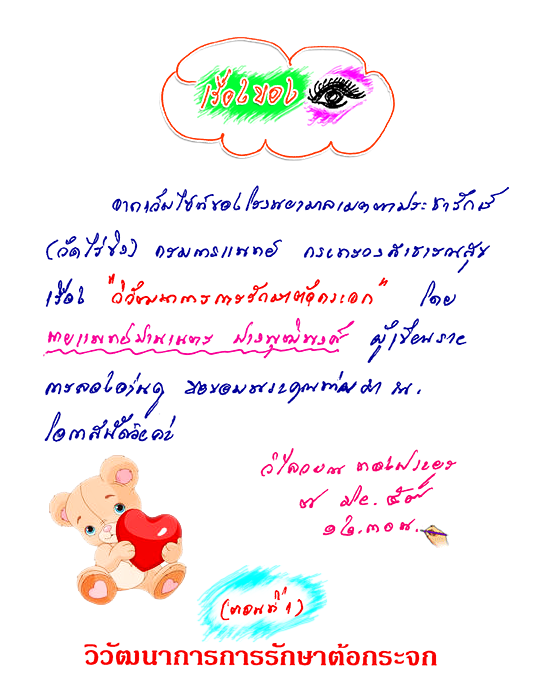 เรื่องของ
จากเว็บไซต์ของโรงพยาบาลเมตตาประชารักษ์
(วัดไร่ขิง) กรมการแพทย์ กระทรวงสาธารณสุข
เรื่อง "วิวัฒนาการการรักษาต้อกระจก" โดย
นายแพทย์ปานเนตร ปางพุฒิพงศ์ ผู้เขียนราย
การลองอ่านดู ขอขอบพระคุณท่าน ณ
โอกาสนี้ด้วยค่ะ
๑๒.๓๐น.
(ตอนที่ ๑)
วิวัฒนาการการรักษาต้อกระจก